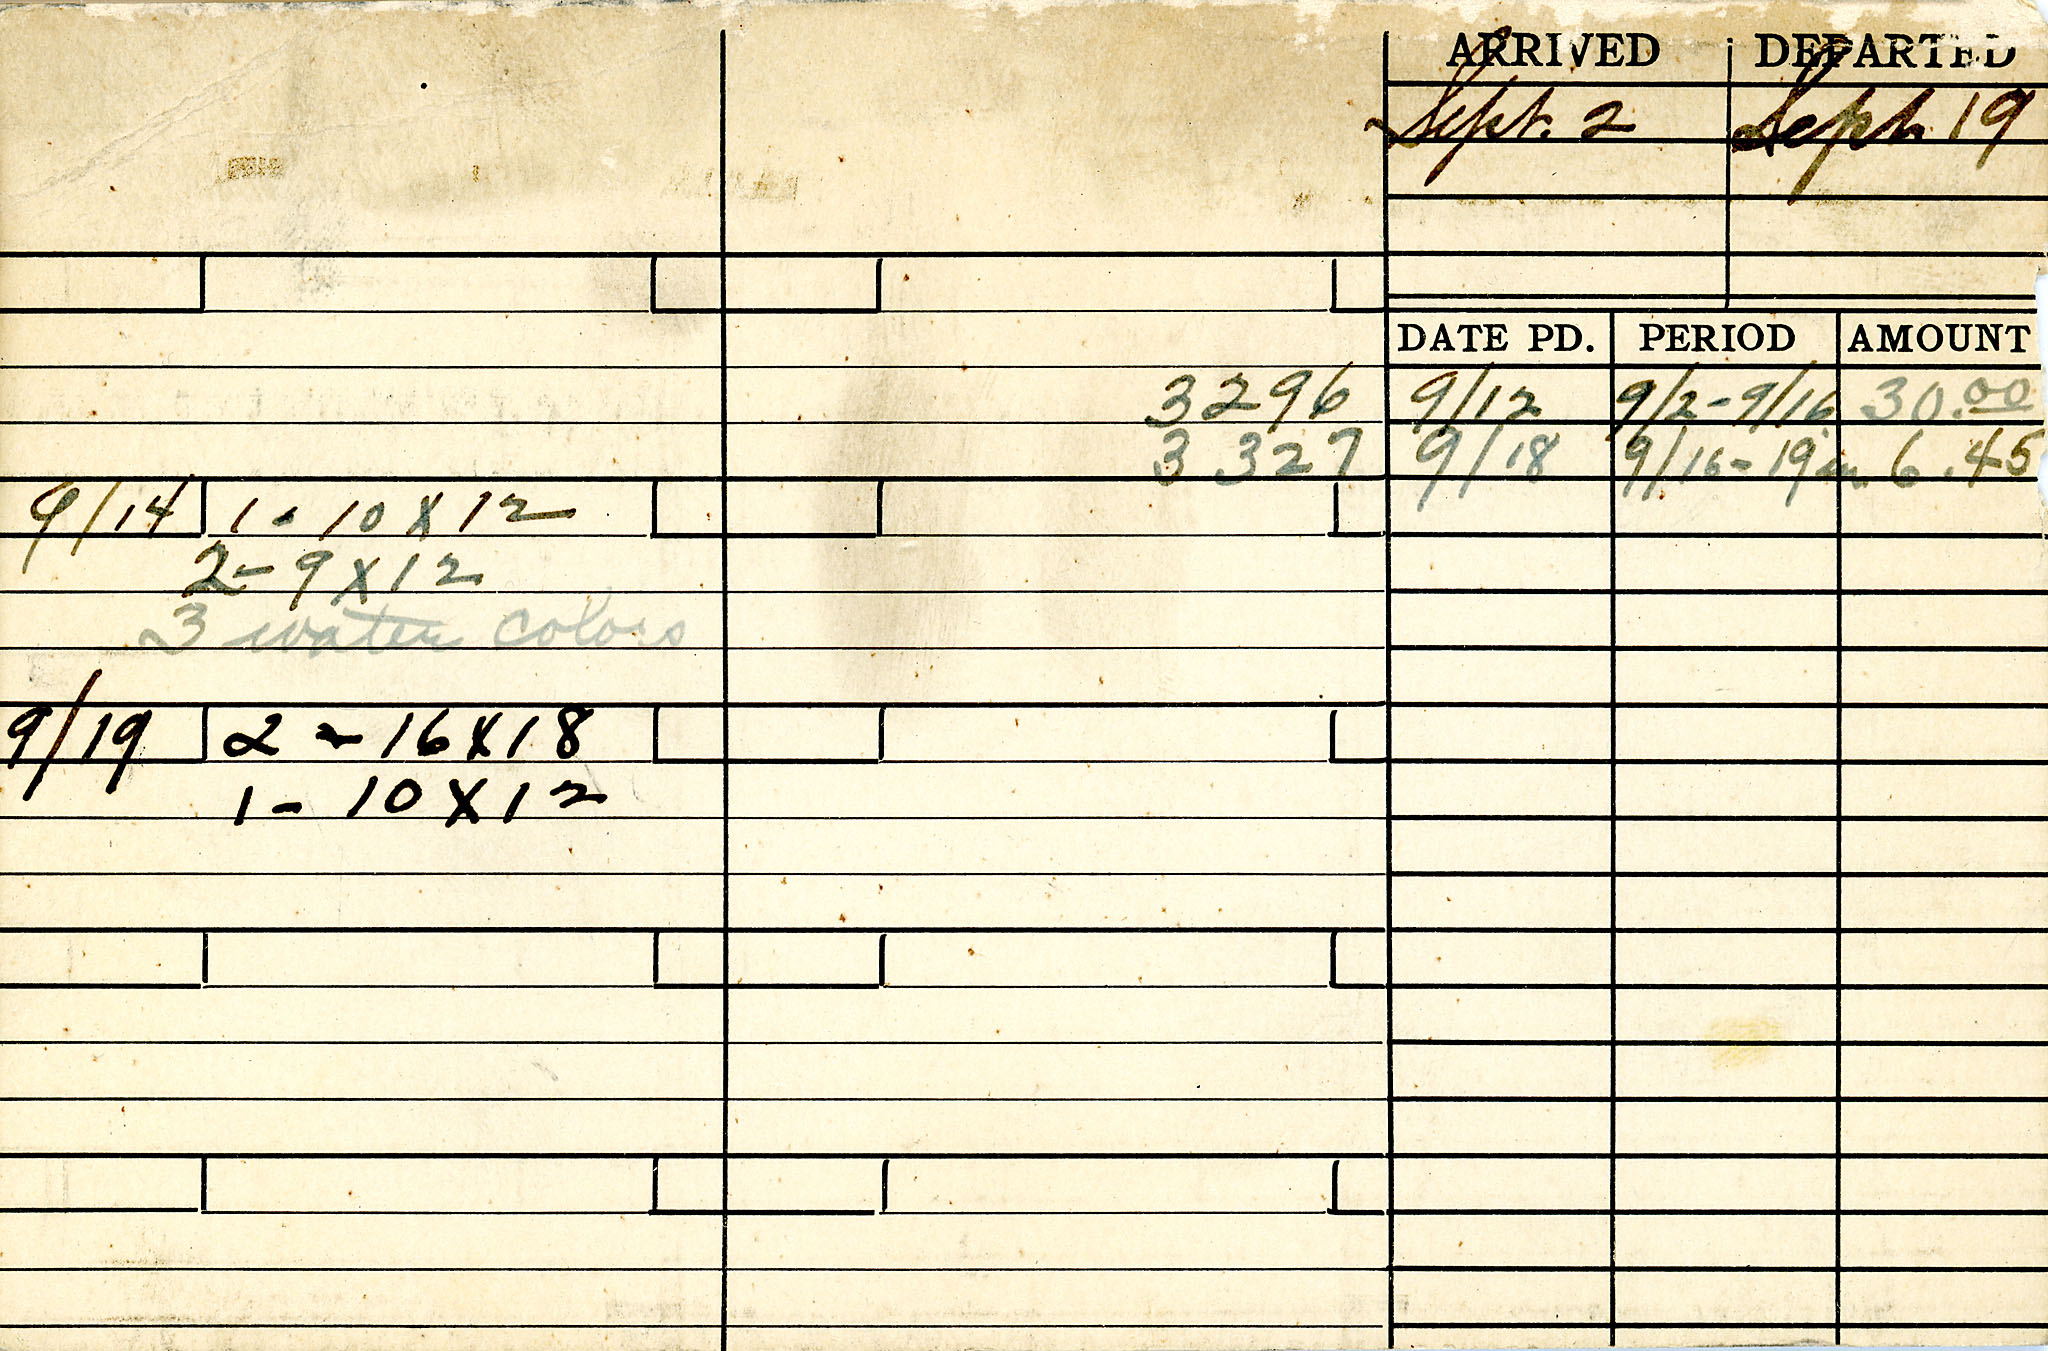 ARRIVED DEPARTED
Sept. 2 Sept. 19
DATE PD. PERIOD AMOUNT
3296 9/12 9/2-9/16 30.00
3327 9/18 9/16-19 6.45
9/14 1 - 10 X 12
2 - 9 X 12
3 water colors
9/19 2 - 16 X 18
1 - 10 X 12